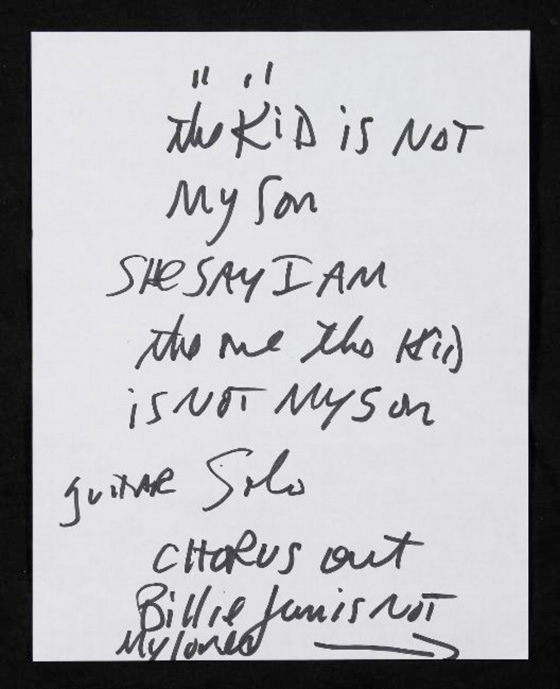 " "
the KiD is NOT
My Son
SHE SAY I AM
the one the KiD
is NOT MY Son
guitAR Solo
CHORUS out
Billie Jean is NOT
My lover →